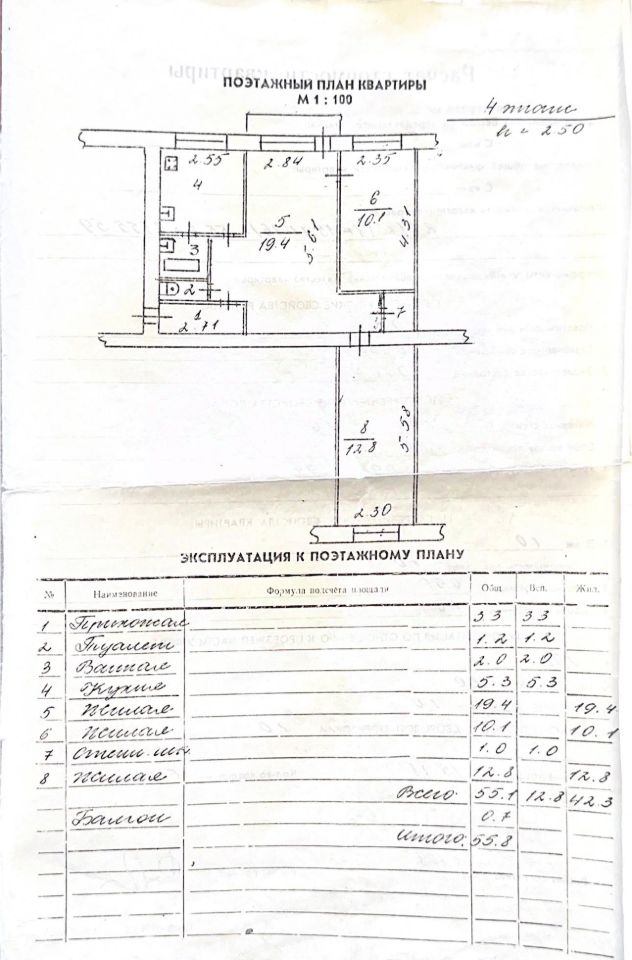 ПОЭТАЖНЫЙ ПЛАН КВАРТИРЫ
М 1 : 100
4 этаж
h = 2 50
2.55
2.84
2.35
4
6
10.1
4.31
5
19.4
5.61
3
2
1
2.71
7
8
12.8
5.58
2.30
ЭКСПЛУАТАЦИЯ К ПОЭТАЖНОМУ ПЛАНУ
№ Наименование Формула подсчёта площади Общ. Всп. Жил.
1 Прихожая 3.3 3.3
2 Туалет 1.2 1.2
3 Ванная 2.0 2.0
4 Кухня 5.3 5.3
5 Жилая 19.4 19.4
6 Жилая 10.1 10.1
7 Стенн. шк. 1.0 1.0
8 Жилая 12.8 12.8
Всего: 55.1 12.8 42.3
Балкон 0.7
Итого: 55.8